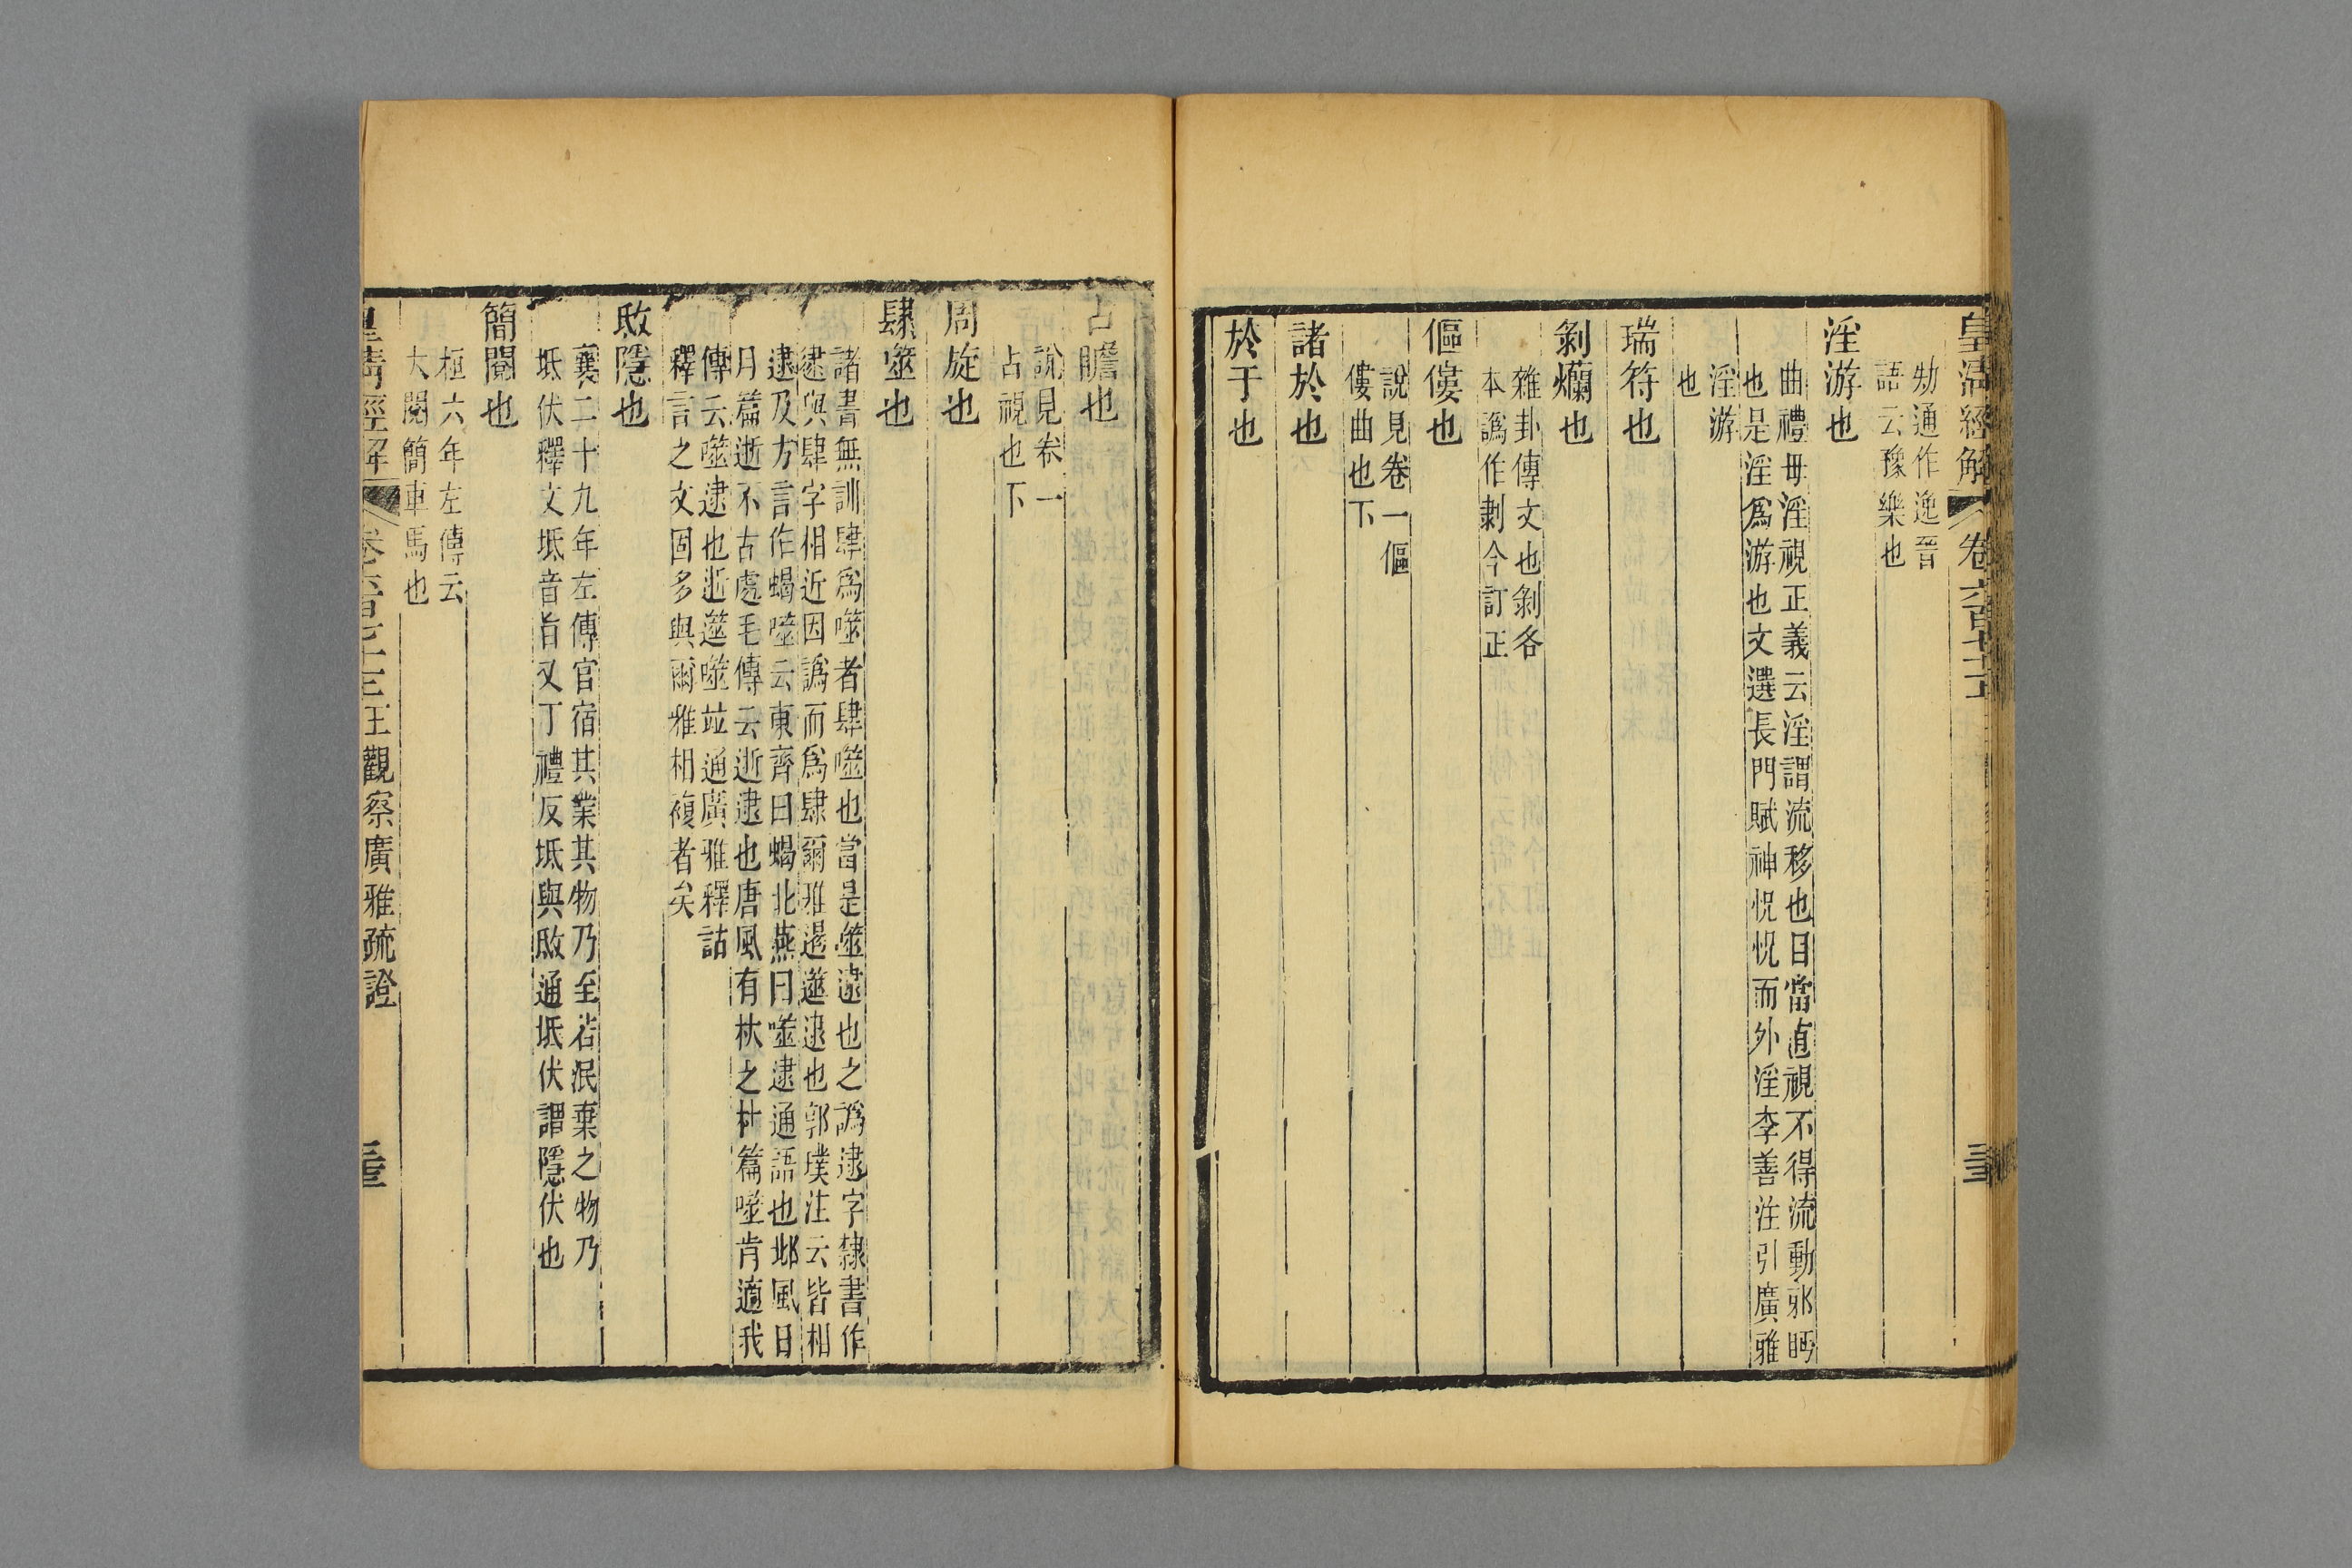 皇清經解
卷六百七十
劮通作逸晉
語云豫樂也
淫游也
曲禮毋淫視正義云淫謂流移也目當直視不得流動邪眄
也是淫爲游也文選長門賦神怳怳而外淫李善注引廣雅
淫游
也
瑞符也
剝爤也
雜卦傳文也剝各
本譌作剥今訂正
傴僂也
說見卷一傴
僂曲也下
諸於也
於于也
占瞻也
說見卷一
占視也下
周旋也
肆噬也
諸書無訓肆爲噬者肆噬也當是噬逮也之譌逮字隸書作
逮與肆字相近因譌而爲肆爾雅遏遾逮也郭璞注云皆相
逮及方言作蝎噬云東齊曰蝎北燕曰噬逮通語也邶風日
月篇逝不古處毛傳云逝逮也唐風有杕之杜篇噬肯適我
傳云噬逮也逝遾噬竝通廣雅釋詁
釋言之文固多與爾雅相複者矣
敃隱也
襄二十九年左傳官宿其業其物乃至若泯棄之物乃
坻伏釋文坻音旨又丁禮反坻與敃通坻伏謂隱伏也
簡閱也
桓六年左傳云
大閱簡車馬也
皇清經解
王觀察廣雅疏證